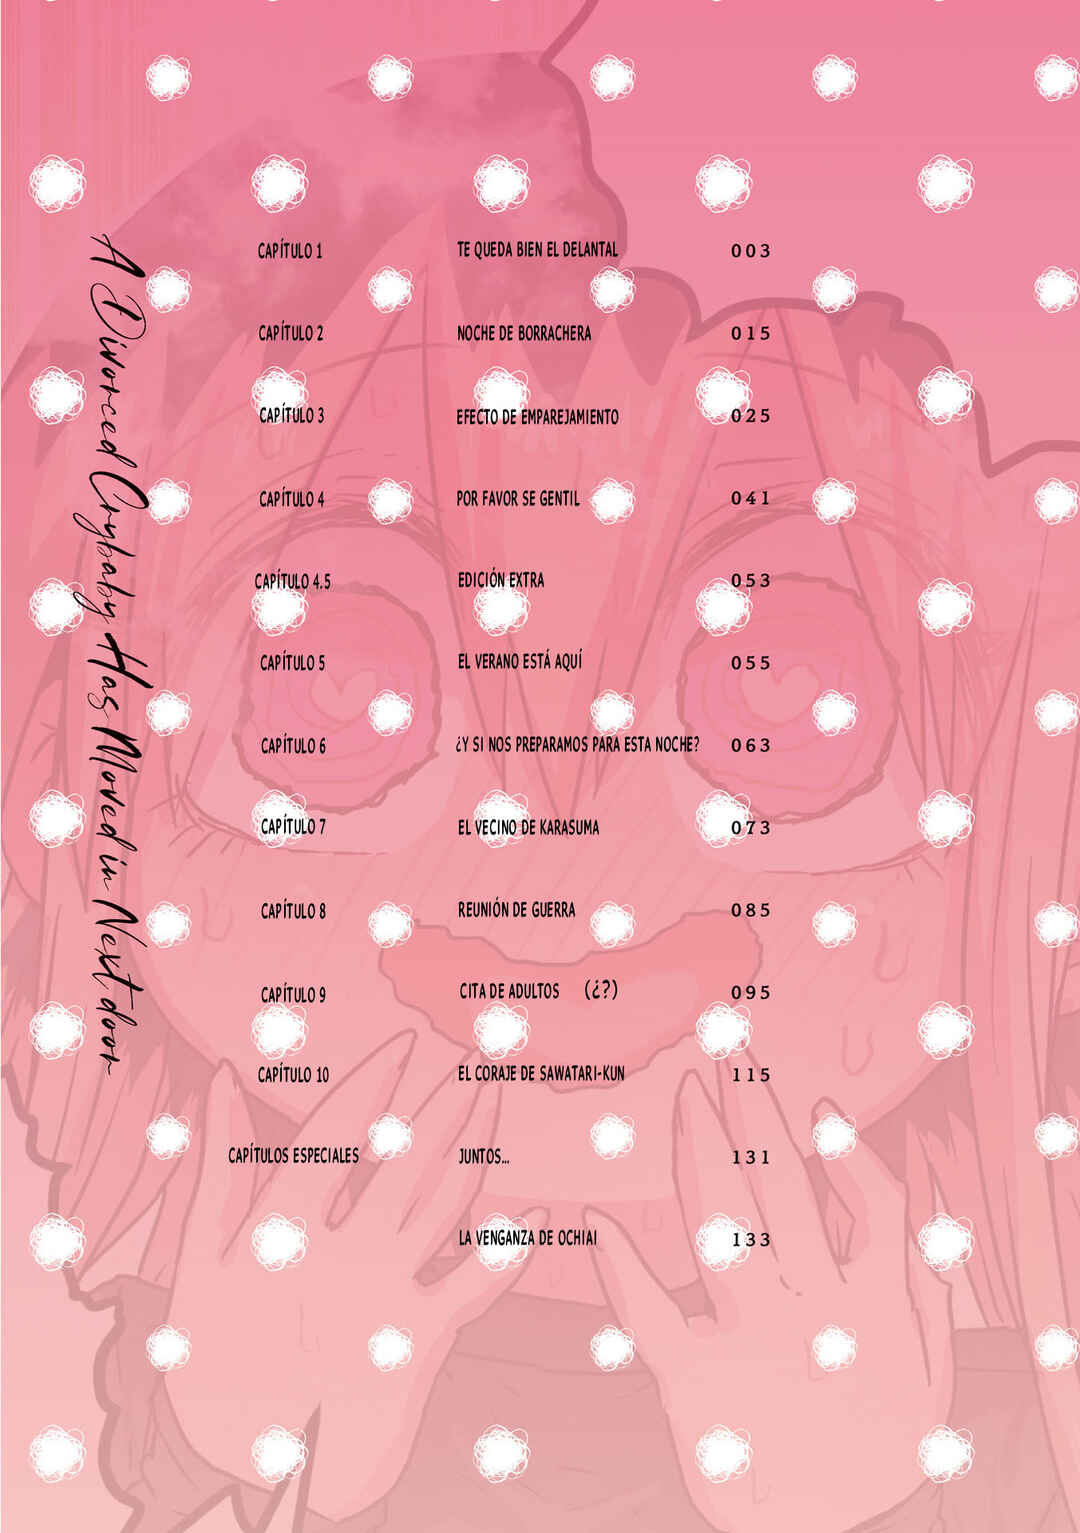 A Divorced Crybaby Has Moved in Next door
CAPÍTULO 1 TE QUEDA BIEN EL DELANTAL 003
CAPÍTULO 2 NOCHE DE BORRACHERA 015
CAPÍTULO 3 EFECTO DE EMPAREJAMIENTO 025
CAPÍTULO 4 POR FAVOR SE GENTIL 041
CAPÍTULO 4.5 EDICIÓN EXTRA 053
CAPÍTULO 5 EL VERANO ESTÁ AQUÍ 055
CAPÍTULO 6 ¿Y SI NOS PREPARAMOS PARA ESTA NOCHE? 063
CAPÍTULO 7 EL VECINO DE KARASUMA 073
CAPÍTULO 8 REUNIÓN DE GUERRA 085
CAPÍTULO 9 CITA DE ADULTOS (¿?) 095
CAPÍTULO 10 EL CORAJE DE SAWATARI-KUN 115
CAPÍTULOS ESPECIALES JUNTOS... 131
LA VENGANZA DE OCHIAI 133